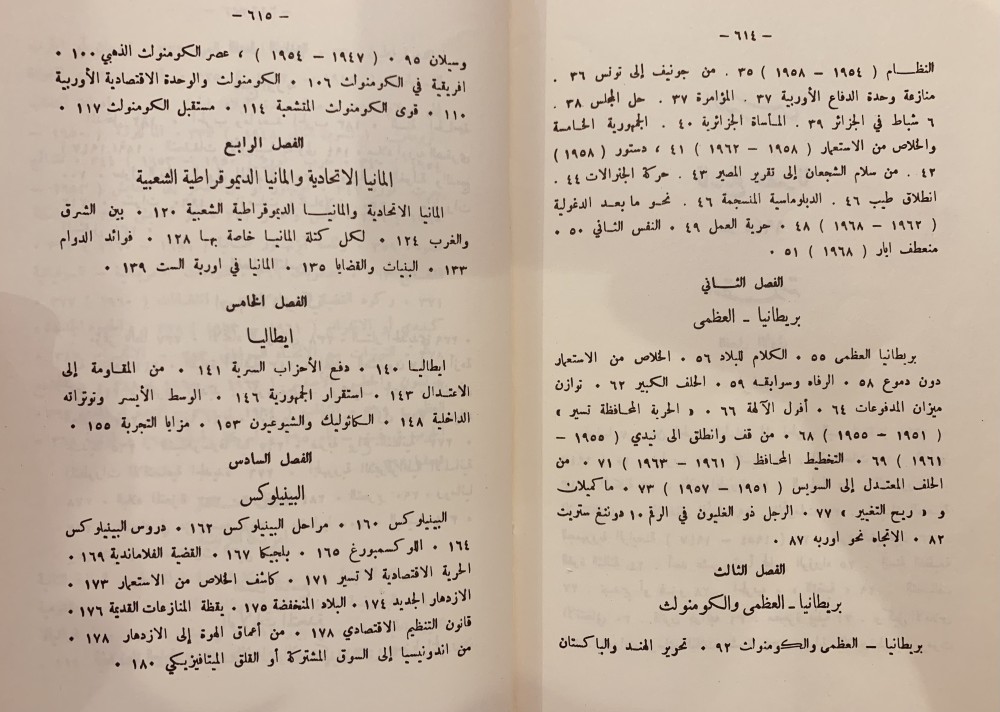 — ٦١٤ —
النظـــام ( ١٩٥٤ — ١٩٥٨ ) ٣٥ . من جونيف إلى تونس ٣٦ .
منازعة وحدة الدفاع الأوربية ٣٧ . المؤامرة ٣٧ . حل المجلس ٣٨ .
٦ شباط في الجزائر ٣٩ . المأساة الجزائرية ٤٠ . الجمهورية الخامسة
والخلاص من الاستعمار ( ١٩٥٨ — ١٩٦٢ ) ٤١ ، دستور ( ١٩٥٨ )
٤٢ . من سلام الشجعان إلى تقرير المصير ٤٣ . حركة الجنرالات ٤٤ .
انطلاق طيب ٤٦ . الدبلوماسية المنسجمة ٤٦ . نحـو ما بعـد الدغولية
( ١٩٦٢ — ١٩٦٨ ) ٤٨ • حرية العمل ٤٩ • النفس الثـاني ٥٠ •
منعطف ايار ( ١٩٦٨ ) ٥١ •
الفصل الثـــاني
بريطانيـا ـ العظمى
بريطانيا العظمى ٥٥ • الكلام للبلاد ٥٦ • الخلاص من الاستعمار
دون دموع ٥٨ • الرفاه وسوابقـه ٥٩ • الحلف الكبير ٦٢ • توازن
ميزان المدفوعات ٦٤ • أفول الآلهة ٦٦ • « الحرية المحـافظة تسير »
( ١٩٥١ — ١٩٥٥ ) ٦٨ • من قف وانطلق الى نيدي ( ١٩٥٥ —
١٩٦١ ) ٦٩ • التخطيط المحـافظ ( ١٩٦١ — ١٩٦٣ ) ٧١ • من
الحلف المعتـدل إلى السويس ( ١٩٥١ — ١٩٥٧ ) ٧٣ • ماكميلان
و « ريـح التغيير » ٧٧ • الرجل ذو الغليون في الرقم ١٠ دونتغ ستريت
٨٢ • الاتجاه نحو اوربه ٨٧ •
الفصل الثالث
بريطانيا ـ العظمى والكومنولث
بريطانيا — العظمى والكومنولث ٩٢ • تحرير الهند والباكستان
— ٦١٥ —
وسيلان ٩٥ • ( ١٩٤٧ — ١٩٥٤ ) ، عصر الكومنولث الذهبي ١٠٠ •
افريقية في الكومنولث ١٠٦ • الكومنولث والوحدة الاقتصادية الأوربية
١١٠ • قوى الكومنولث المتشعبة ١١٤ • مستقبل الكومنولث ١١٧ •
الفصل الرابع
المانيا الاتحادية والمانيا الديموقراطية الشعبية
المانيا الاتحادية والمانيـــا الديموقراطية الشعبية ١٢٠ • بين الشرق
والغرب ١٢٤ • لكل كتلة المانيـا خاصة بهـا ١٢٨ • فوائد الدوام
١٣٣ • البنيات والقضايا ١٣٥ • المانيا في اوربة الست ١٣٩ •
الفصل الخامس
ايطاليـا
ايطاليـا ١٤٠ • دفع الأحزاب السرية ١٤١ • من المقـاومة إلى
الاعتـدال ١٤٣ • استقرار الجمهورية ١٤٦ • الوسط الأيسر وتوتراته
الداخلية ١٤٨ • الكاثوليك والشيوعيون ١٥٣ • مزايا التجربة ١٥٥ •
الفصل السادس
البينيلوكس
البينيلوكس ١٦٠ • مراحل البينيلوكس ١٦٢ • دروس البينيلوكس
١٦٤ • اللوكسمبورغ ١٦٥ • بلجيكا ١٦٧ • القضية الفلاماندية ١٦٩ •
الحرية الاقتصادية لا تسير ١٧١ • كاشف الخلاص من الاستعمار ١٧٣ •
الازدهار الجديد ١٧٤ • البلاد المنخفضة ١٧٥ • يقظة المنازعات القديمة ١٧٦ •
قانون التنظيم الاقتصادي ١٧٨ • من أعماق الهوة إلى الازدهار ١٧٨ •
من اندونيسيا إلى السوق المشتركة أو القلق الميتافيزيكي ١٨٠ •